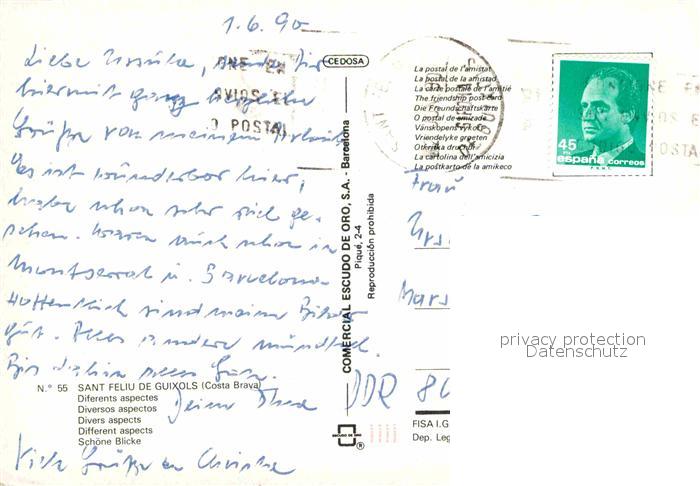 1.6.90
Liebe Ursula, sende Dir
hiermit ganz herzliche
Grüße von meinem Urlaub.
Es ist wunderbar hier,
habe schon sehr viel ge-
sehen. Waren auch schon in
Montserrat u. Barcelona
Hoffentlich sind meine Bilder
gut. Alles andere mündlich.
Bis dahin alles Gute.
Deine
Viele Grüße an
N.° 55 SANT FELIU DE GUIXOLS (Costa Brava)
Diferents aspectes
Diversos aspectos
Divers aspects
Different aspects
Schöne Blicke
CEDOSA
COMERCIAL ESCUDO DE ORO, S.A. - Barcelona
Piqué, 2-4
Reproducción prohibida
ESCUDO DE ORO
®
La postal de l'amistat
La postal de la amistad
La carte postale de l'amitié
The friendship post card
Die Freundschaftskarte
O postal de amizade
Vänskopens vykort
Vriendelyke groeten
Otkritka druchbi
La cartolina dell'amicizia
La postkarto de la amikeco
45
PTA
españa correos
F.N.M.T.
Frau
DDR 80
privacy protection
Datenschutz
FISA I.G
Dep. Leg